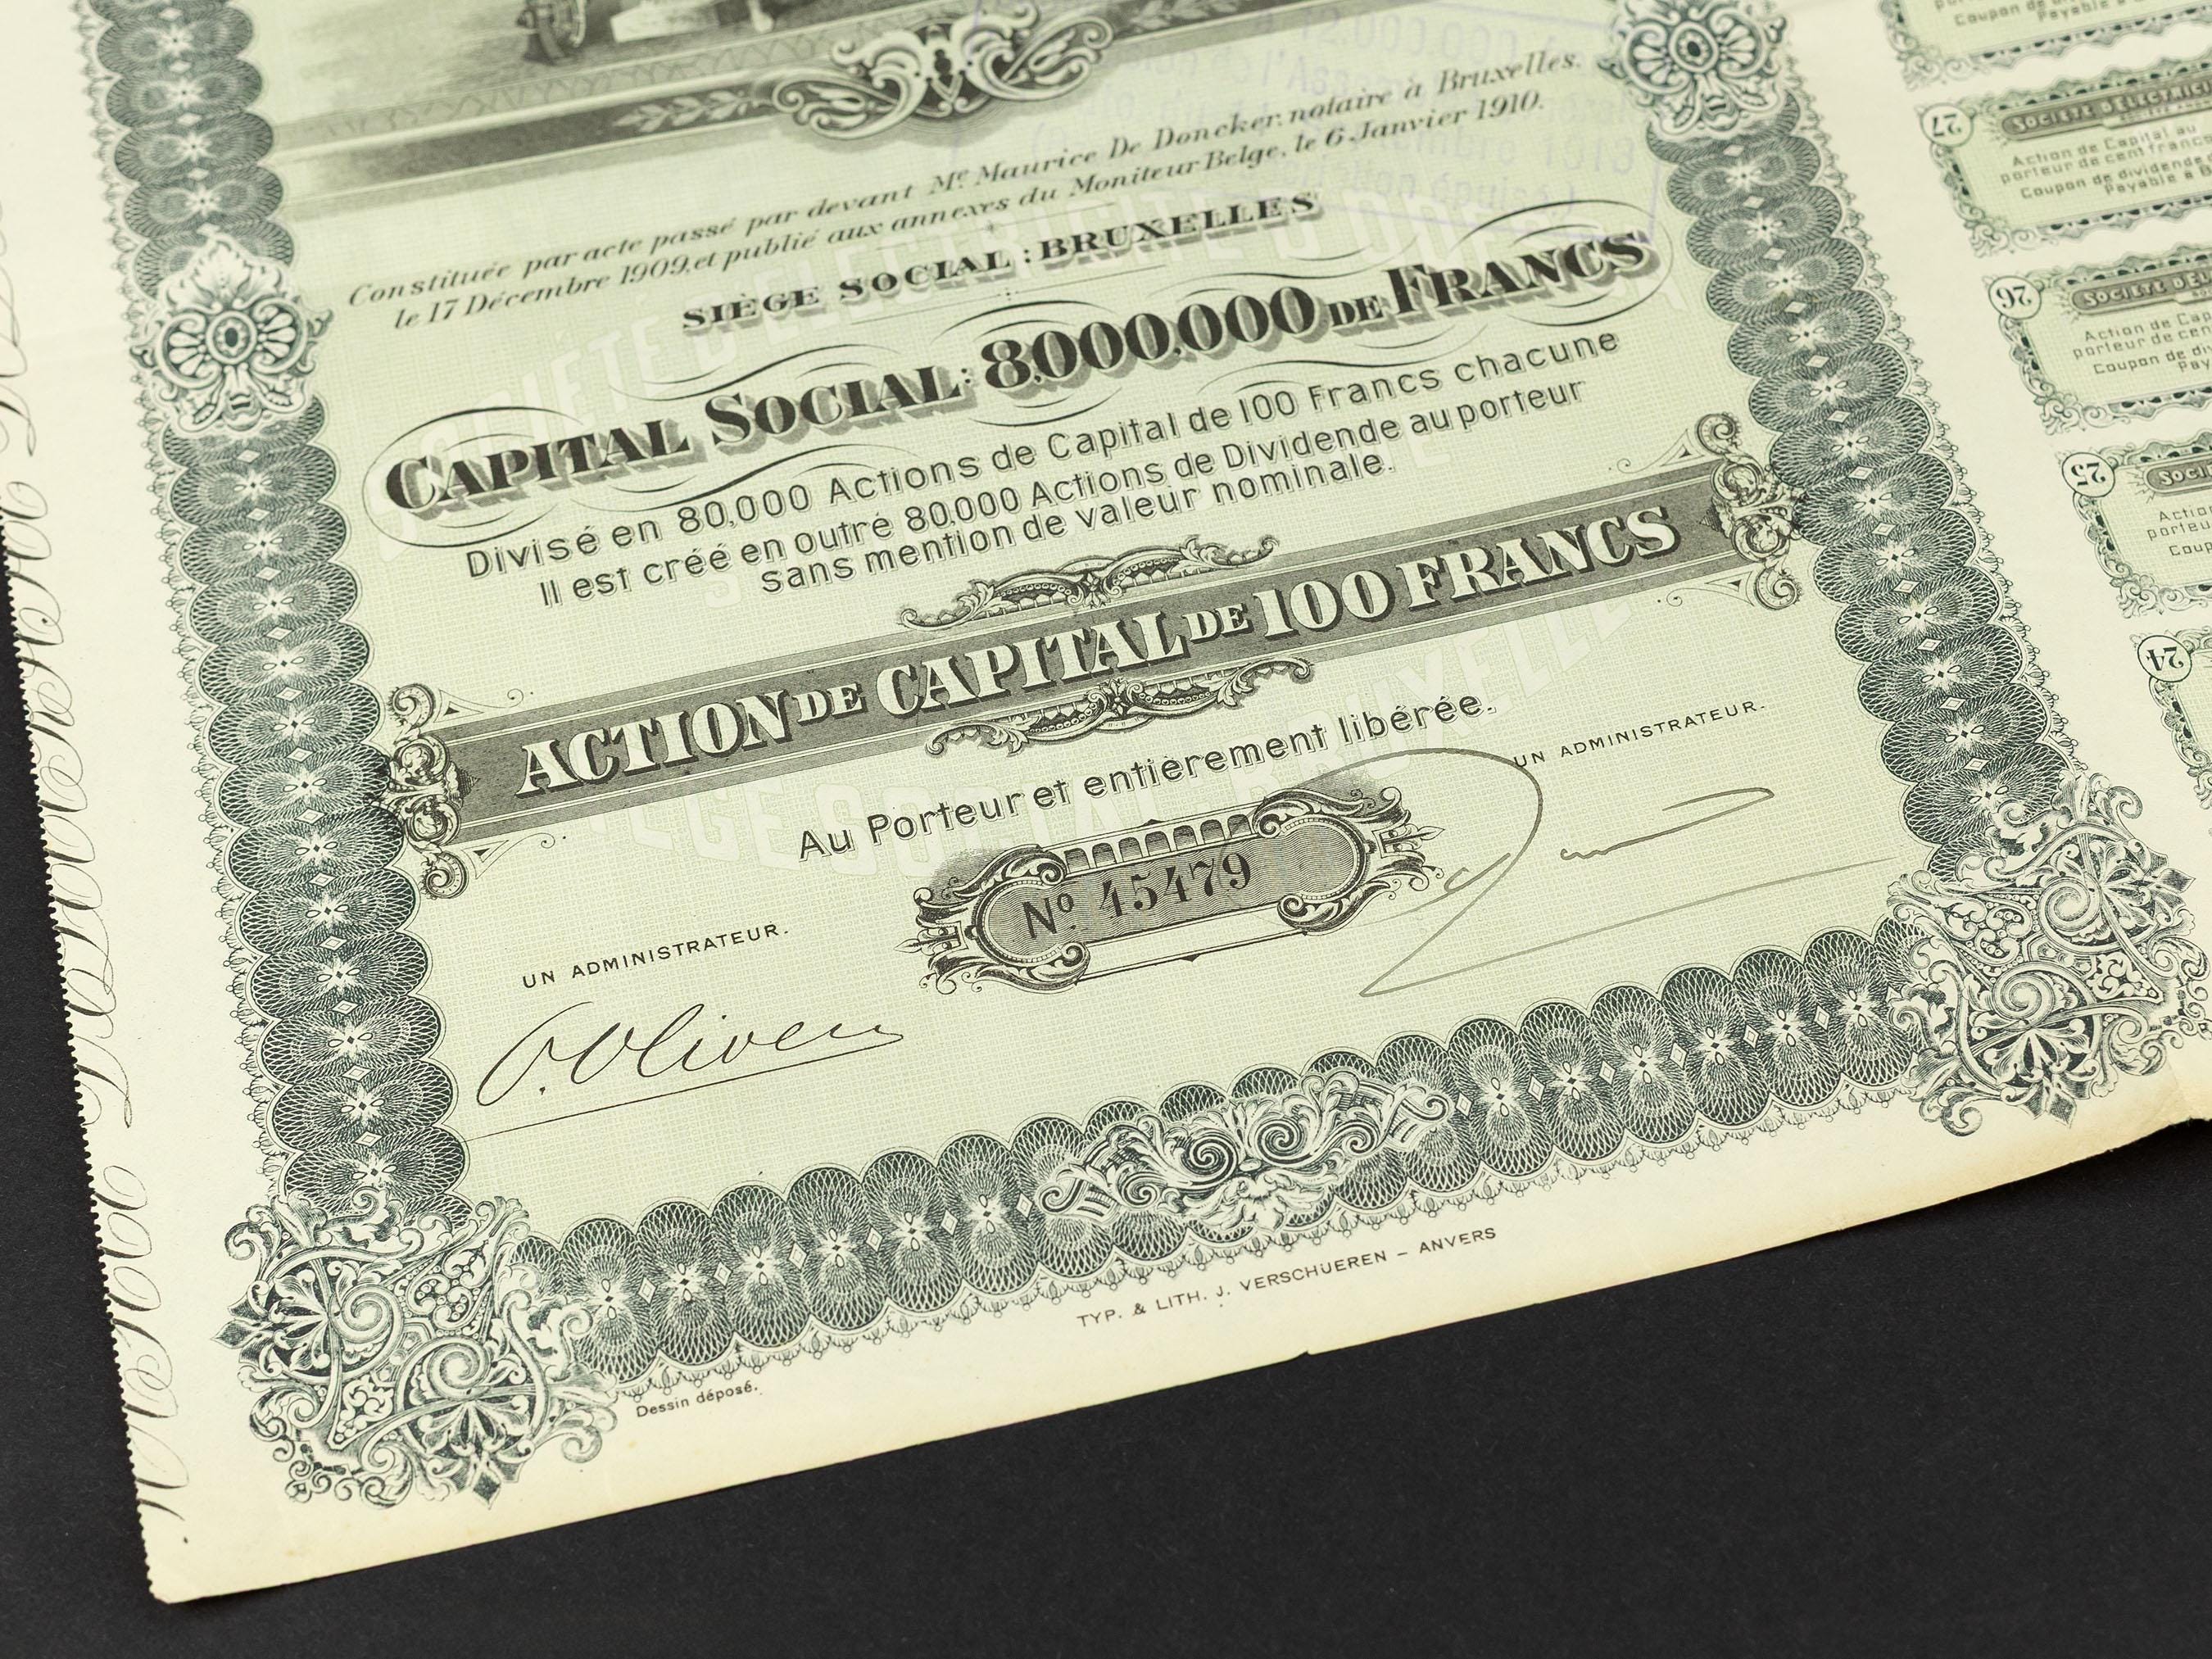 12.000.000
Constituée par acte passé par devant Me Maurice De Doncker, notaire à Bruxelles.
le 17 Décembre 1909, et publié aux annexes du Moniteur Belge, le 6 Janvier 1910.
SIÈGE SOCIAL : BRUXELLES
CAPITAL SOCIAL: 8.000.000 DE FRANCS
Divisé en 80.000 Actions de Capital de 100 Francs chacune
Il est créé en outre 80.000 Actions de Dividende au porteur
sans mention de valeur nominale.
ACTION DE CAPITAL DE 100 FRANCS
Au Porteur et entièrement libérée.
UN ADMINISTRATEUR.
No 45479
UN ADMINISTRATEUR.
TYP. & LITH. J. VERSCHUEREN – ANVERS
Dessin déposé.
Coupon de
Payable à
27
SOCIÉTÉ D'ÉLECTRICI
Action de Capital au
porteur de cent francs
Coupon de dividende
Payable à B
26
SOCIÉTÉ D'EL
Action de Cap
porteur de cen
Coupon de div
Pay
25
SOCI
Actio
porteu
Coup
24